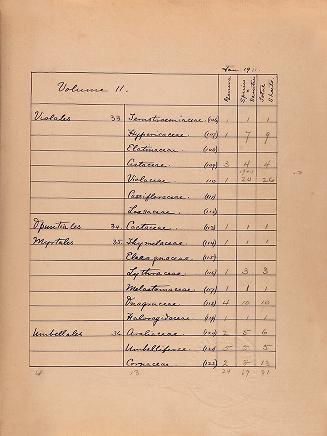 Jan 1911.
Volume 11. Genera Species & Varieties Total Sheets
Violales 33. Ternstroemiaceae. (106) 1 1 1
Hypericaceae. (107) 1 7 9
Elatinaceae. (108)
Cistaceae. (109) 3 4 4
Violaceae 110 1 20 26
Passifloraceae. (111)
Loasaceae. (112)
Opuntiales 34. Cactaceae. (113) 1 1 1
Myrtales 35. Thymelaceae. (114) 1 1 1
Elaeagnaceae. (115)
Lythraceae. (116) 1 3 3
Melastomaceae. (117) 1 1 1
Onagraceae. (118) 4 10 10
Haloragidaceae. (119) 1 1 1
Umbellales 36. Araliaceae. (120) 2 5 6
Umbelliferae. (121) 5 5 5
Cornaceae. (122) 2 13
13 24 81